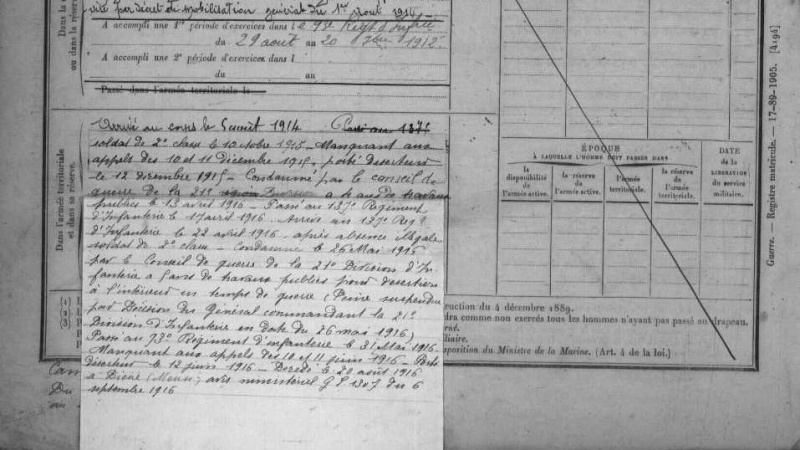 A accompli une 1re période d'exercices dans le 93e Régt d'Infrie
du 29 août au 20 7bre 1912.
A accompli une 2e période d'exercices dans l
du au
Passé dans l'armée territoriale le
Dans la
ou dans la réserve
Dans l'armée territoriale
et dans sa réserve.
Arrivé au corps le 5 août 1914 Passé au 137e
soldat de 2e classe le 10 octobre 1915 - Manquant aux
appels des 10 et 11 Décembre 1915, porté déserteur
le 12 Décembre 1915 - Condamné par le conseil de
guerre de la 21e a 4 ans de travaux
publics le 13 avril 1916 - Passé au 137e Régiment
d'Infanterie le 17 avril 1916. Arrivé au 137e Régt
d'Infanterie le 22 avril 1916 après absence illégale
soldat de 2e classe - Condamné le 26 Mai 1916
par le Conseil de guerre de la 21e Division d'In-
fanterie a 5 ans de travaux publics pour désertion
à l'intérieur en temps de guerre (Peine suspendue
par Décision du Général commandant la 21e
Division d'Infanterie en date du 26 mai 1916)
Passé au 93e Régiment d'infanterie le 31 Mai 1916.
Manquant aux appels des 10 et 11 juin 1916 - Porté
déserteur le 12 juin 1916 - Décédé le 20 août 1916
à Dieue (Meuse) avis ministériel G P 1307 du 6
septembre 1916
ÉPOQUE
À LAQUELLE L'HOMME DOIT PASSER DANS
la disponibilité de l'armée active.
la réserve de l'armée active.
l'armée territoriale.
la réserve de l'armée territoriale.
DATE
de la
LIBÉRATION
du service
militaire.
ruction du 4 décembre 1889.
dra comme non exercés tous les hommes n'ayant pas passé au drapeau.
liaire.
sposition du Ministre de la Marine. (Art. 4 de la loi.)
(1)
(2)
(3)
Du
au
Guerre. — Registre matricule. — 17-89-1905. [4194]